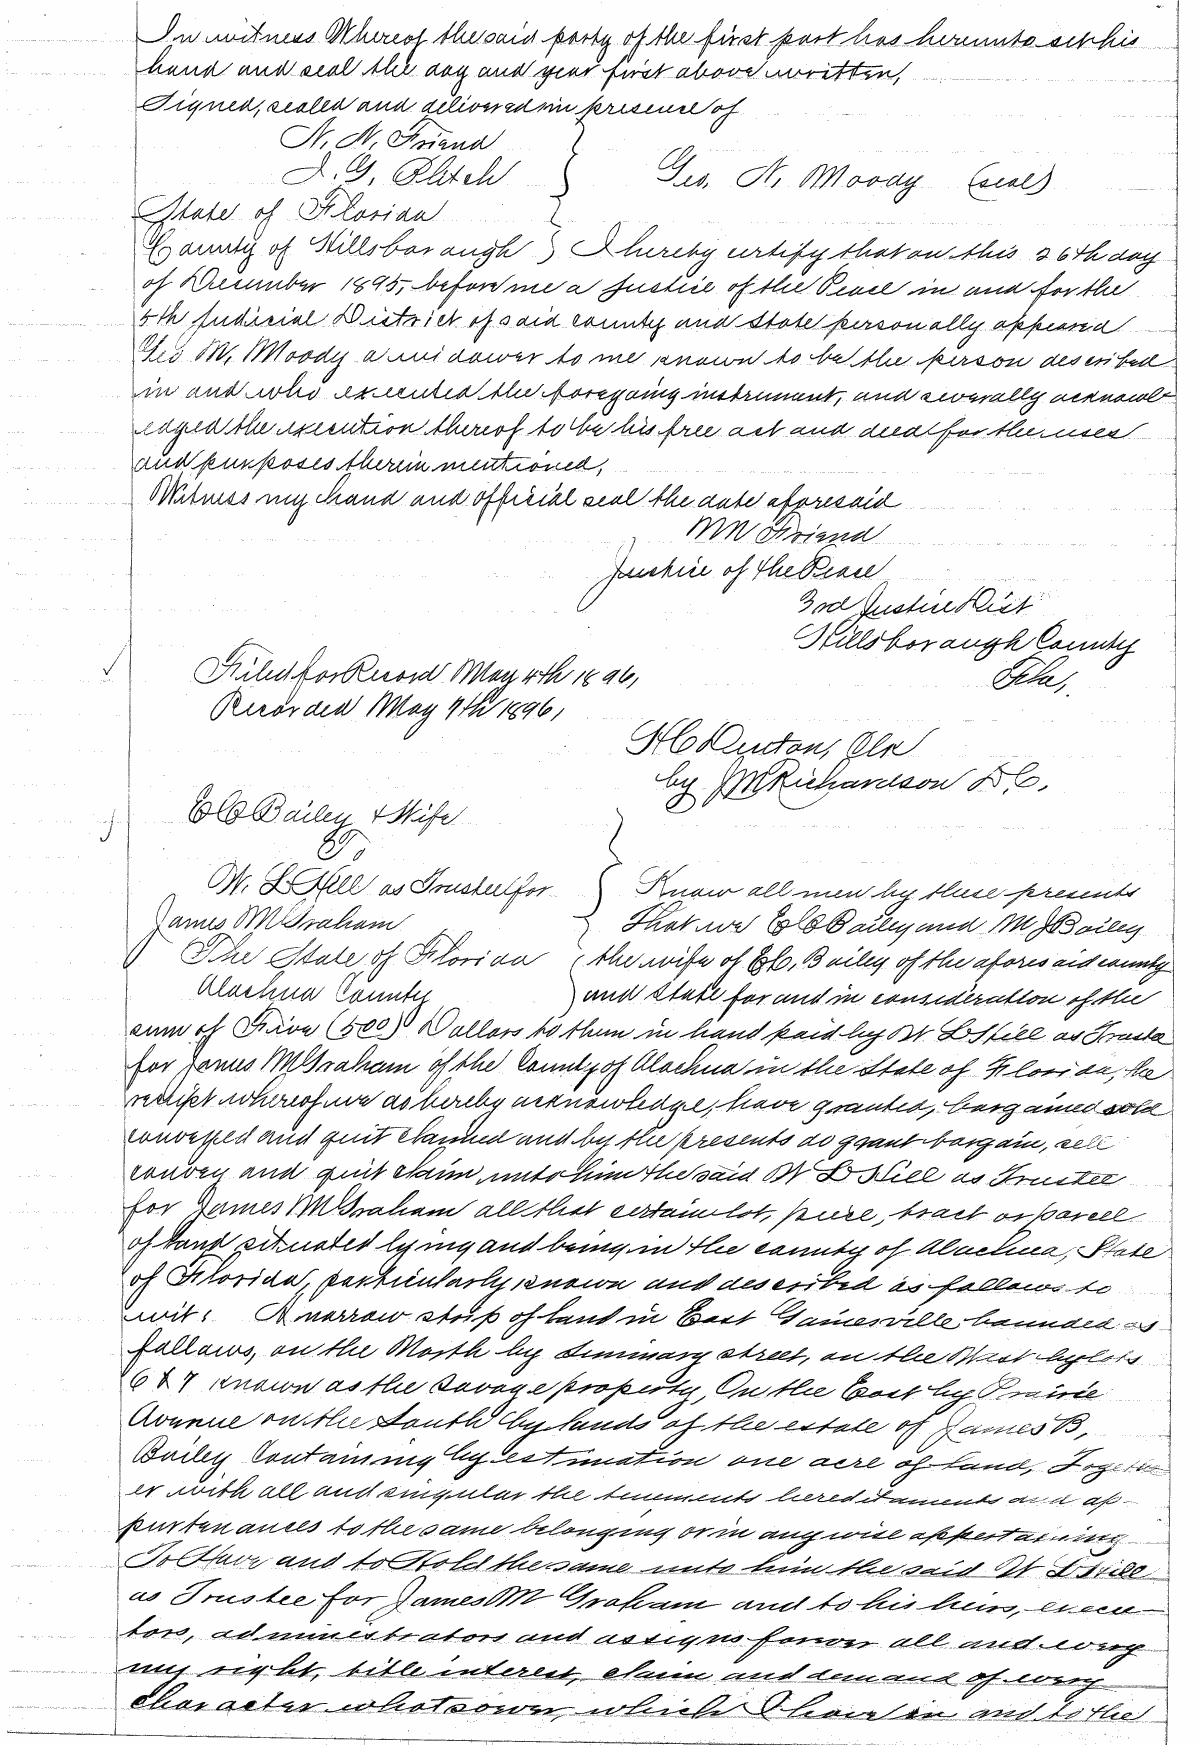 In witness Whereof the said party of the first part has hereunto set his
hand and seal the day and year first above written,
Signed, sealed and delivered in presence of
N. N. Friend
J. G.
Geo. N. Moody (seal)
State of Florida
County of Hillsborough } I hereby certify that on this 26th day
of December 1895, before me a Justice of the Peace in and for the
Judicial District of said county and State personally appeared
Geo M. Moody a widower to me known to be the person described
in and who executed the foregoing instrument, and severally acknowl-
edged the execution thereof to be his free act and deed for the uses
and purposes therein mentioned,
Witness my hand and official seal the date aforesaid
Friend
Justice of the Peace
3rd Justice Dist
Hillsborough County
Fla,
Filed for Record May 4th 1896,
Recorded May 9th 1896,
H C Denton, Clk
by J M Richardson D.C.
E C Bailey & Wife
To
W. L Hill as Trustee for
James M Graham
The State of Florida
Alachua County
Know all men by these presents
That we E C Bailey and M J Bailey
the wife of E C. Bailey of the aforesaid county
and State for and in consideration of the
sum of Five (500) Dollars to them in hand paid by W L Hill as Truste
for James M Graham of the County of Alachua in the State of Florida, the
reciept whereof we do hereby acknowledge, have granted, bargained sold
conveyed and quit claimed and by the presents do grant bargain, sell
convey and quit claim unto him the said W L Hill as Trustee
for James M Graham all that certain lot, piece, tract or parcell
of land situated lying and being in the county of Alachua, State
of Florida, particularly known and described as follows to
wit: A narrow strip of land in East Gainesville bounded as
follows, on the North by Seminary street, on the West by lots
6 & 7 known as the Savage property, On the East by Prairie
Avenue on the South by lands of the estate of James B,
Bailey Containing by estimation one acre of land, Togeth
er with all and singular the tenements hereditaments and ap-
purtenances to the same belonging or in any wise appertaining
To Have and to Hold the same unto him the said W L Hill
as Trustee for James M Graham and to his heirs, execu-
tors, administrators and assigns forever all and every
my right, title interest, claim and demand of every
character whatsoever, which I have in and to the